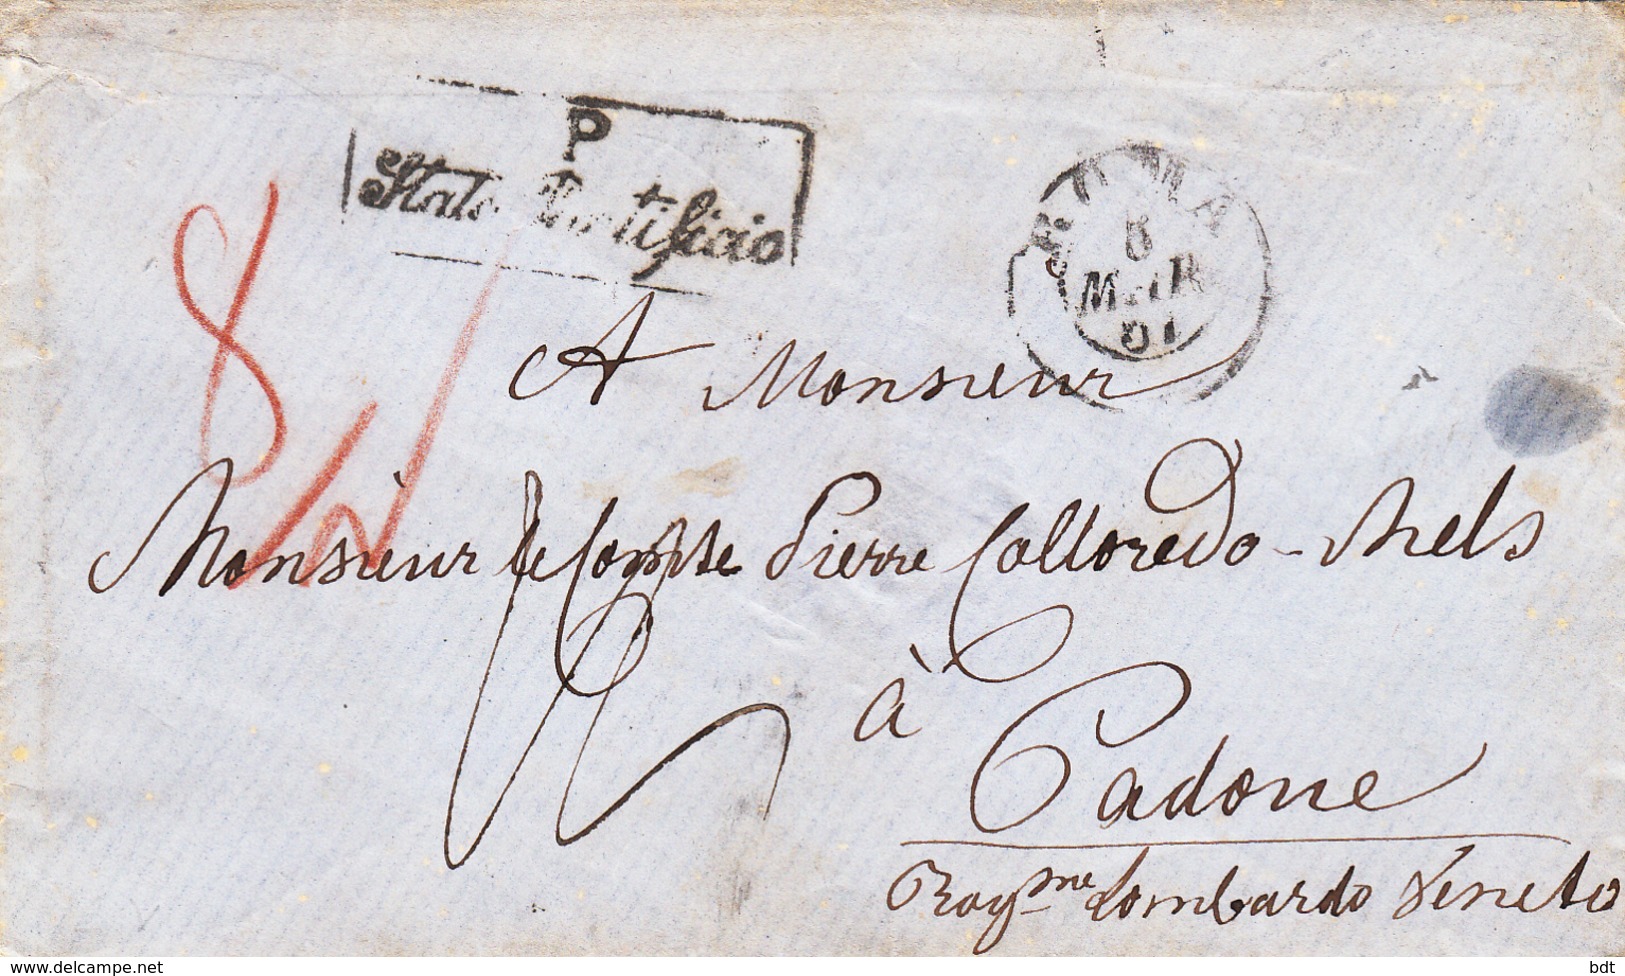 P
Stato Pontificio
ROMA
MAR
8
A Monsieur
Monsieur le Compte Pierre Colloredo-Mels
à
Padoue
Roy.me Lombardo Veneto
www.delcampe.net
bdt